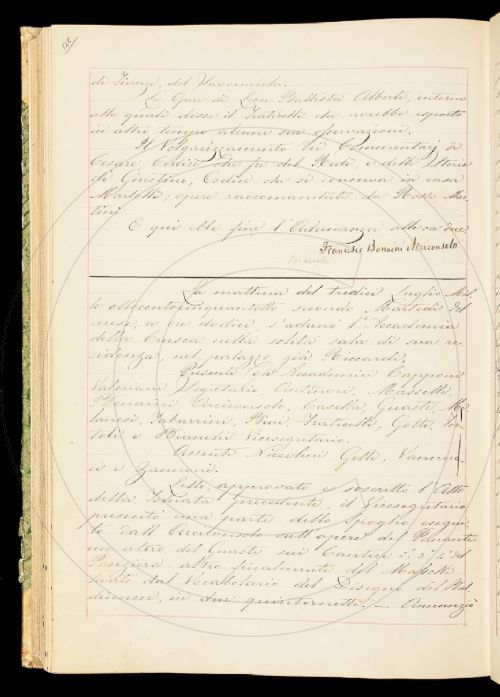 di Firenze, del Savonarola.
Le Opere di Leon Battista Alberti, intorno
alle quali disse il Fraticelli che avrebbe esposto
in altro tempo alcune sue osservazioni.
Il Volgarizzamento dei Commentarj di
Cesare, Codice che fu del Redi, e delle Storie
di Giustino, Codice che si conserva in casa
Martelli; opere raccomandate da
E qui ebbe fine l'Adunanza alle ore due.
Francesco Bonaini Arciconsolo
La mattina del tredici Luglio Mil
le ottocentocinquantotto, secondo Martedì del
mese, a ore dodici, s'adunò l'Accademia
della Crusca nella solita sala di sua re
sidenza, nel palazzo già Riccardi.
Presenti gli Accademici Capponi,
Valeriani Segretario, Antinori, Masselli,
Bonaini Arciconsolo, Casella, Guasti, Mi
lanesi, Tabarrini, Bini, Fraticelli, Gotti, Tor
toli e Bianchi Vicesegretario.
Assenti Niccolini, Gelli, Vannuc
ci e Zannoni.
Letto approvato e soscritto l'Atto
della Tornata precedente, il Vicesegretario
presentò una parte dello spoglio esegui
to dall'Arciconsolo sull'opere del
un altro del Guasti sui
altro finalmente del Masselli
del Vocabolario del Disegno del Bal
dinucci, in due quinternetti. — Annunziò